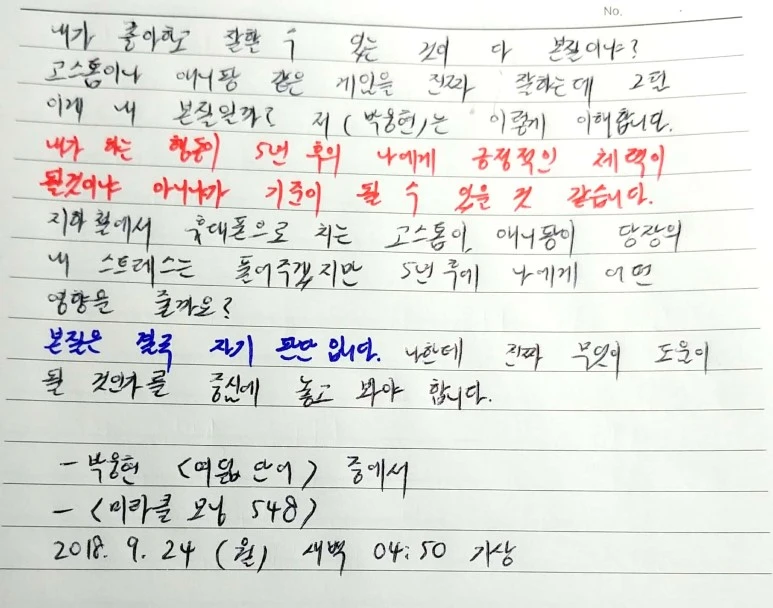 No.
내가 좋아하고 잘할 수 있는 것이 다 본질이냐?
고스톱이나 애니팡 같은 게임을 진짜 잘하는데 그럼
이게 내 본질일까? 저(박웅현)는 이렇게 이해합니다.
내가 하는 행동이 5년 후의 나에게 긍정적인 체력이
될것이냐 아니냐가 기준이 될 수 있을 것 같습니다.
지하철에서 휴대폰으로 치는 고스톱이, 애니팡이 당장의
내 스트레스는 풀어주겠지만 5년 후에 나에게 어떤
영향을 줄까요?
본질은 결국 자기 판단입니다. 나한테 진짜 무엇이 도움이
될 것인가를 중심에 놓고 봐야 합니다.
- 박웅현 <여덟 단어> 중에서
- <미라클 모닝 548>
2018. 9. 24 (월) 새벽 04:50 기상